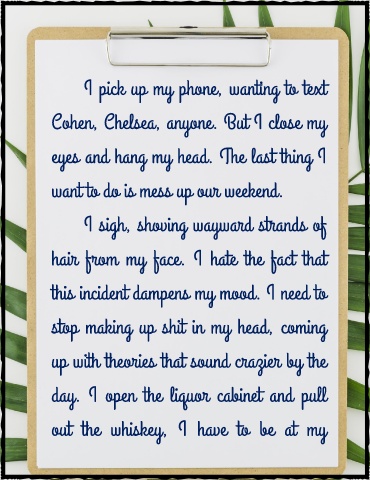 I pick up my phone, wanting to text
Cohen, Chelsea, anyone. But I close my
eyes and hang my head. The last thing I
want to do is mess up our weekend.
I sigh, shoving wayward strands of
hair from my face. I hate the fact that
this incident dampens my mood. I need to
stop making up shit in my head, coming
up with theories that sound crazier by the
day. I open the liquor cabinet and pull
out the whiskey, I have to be at my